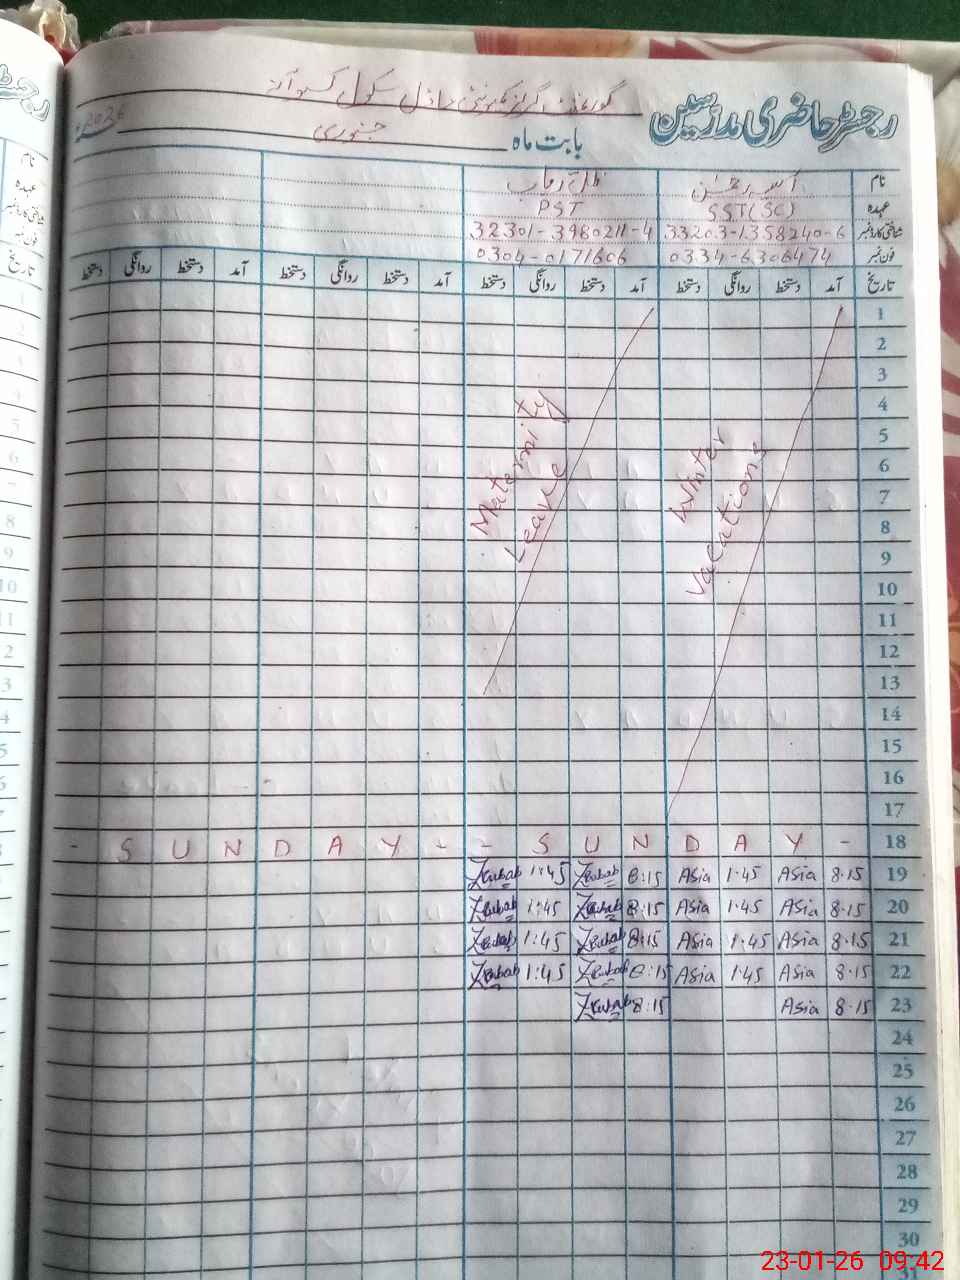 رجسٹر حاضری مدرسین
گورنمنٹ گرلز کمیونٹی ماڈل سکول
بابت ماہ جنوری 2026
نام
عہدہ SST(SC) PST
شناختی کارڈ نمبر 33203-1358240-6 32301-3980211-4
فون نمبر 0334-6306474 0304-0171606
تاریخ آمد دستخط روانگی دستخط آمد دستخط روانگی دستخط آمد دستخط روانگی دستخط آمد دستخط روانگی دستخط
1
2
3
4
5
6
7
8
9
10
11
12
13
14
15
16
17
Winter
Vacations
Maternity
Leave
18
- S U N D A Y - - S U N D A Y -
19 8:15 Asia 1:45 Asia 8:15 Zrubab 1:45 Zrubab
20 8:15 Asia 1:45 Asia 8:15 Zrubab 1:45 Zrubab
21 8:15 Asia 1:45 Asia 8:15 Zrubab 1:45 Zrubab
22 8:15 Asia 1:45 Asia 8:15 Zrubab 1:45 Zrubab
23 8:15 Asia 8:15 Zrubab
24
25
26
27
28
29
30
31
23-01-26 09:42